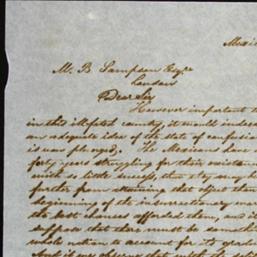 Mexic
M. B. Sampson Esqre
London
Dear Sir
However important t
in this ill-fated country, it would indee
an adequate idea of the state of confusio
is now plunged. The Mexicans have
forty years struggling for their
with so little success, that they may b
further from attaining that object than
beginning of the insurrectionary
the best chances afforded them, and it
suppose that there must be somethin
whole nation to account for its
And it was obvious that with the